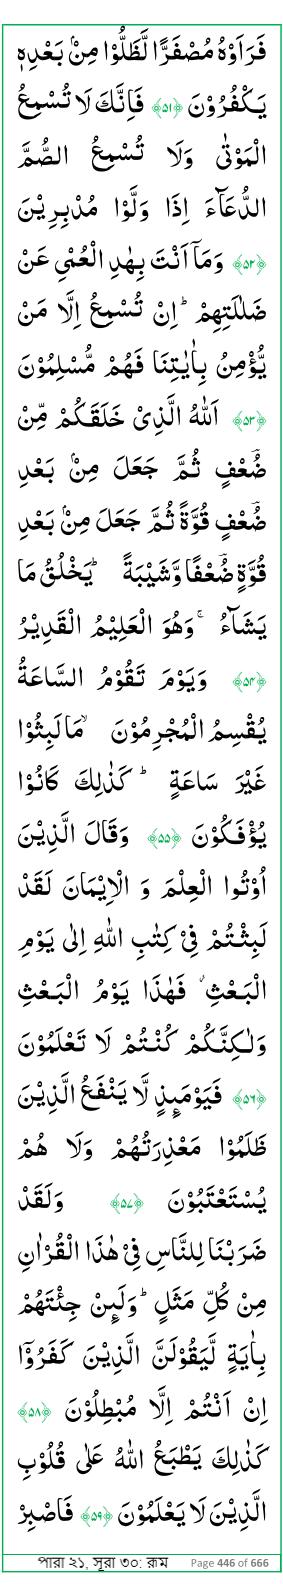 فَرَاَوْهُ مُصْفَرًّا لَّظَلُّوْا مِنْۢ بَعْدِهٖ
يَكْفُرُوْنَ ﴿۵۱﴾ فَاِنَّكَ لَا تُسْمِعُ
الْمَوْتٰى وَلَا تُسْمِعُ الصُّمَّ
الدُّعَآءَ اِذَا وَلَّوْا مُدْبِرِيْنَ
﴿۵۲﴾ وَمَاۤ اَنْتَ بِهٰدِ الْعُمْىِ عَنْ
ضَلٰلَتِهِمْ ؕ اِنْ تُسْمِعُ اِلَّا مَنْ
يُّؤْمِنُ بِاٰيٰتِنَا فَهُمْ مُّسْلِمُوْنَ
﴿۵۳﴾ اَللّٰهُ الَّذِىْ خَلَقَكُمْ مِّنْ
ضُؔعْفٍ ثُمَّ جَعَلَ مِنْۢ بَعْدِ
ضُؔعْفٍ قُوَّةً ثُمَّ جَعَلَ مِنْۢ بَعْدِ
قُوَّةٍ ضُؔعْفًا وَّشَيْبَةً ؕ يَخْلُقُ مَا
يَشَآءُ ۚ وَهُوَ الْعَلِيْمُ الْقَدِيْرُ
﴿۵۴﴾ وَيَوْمَ تَقُوْمُ السَّاعَةُ
يُقْسِمُ الْمُجْرِمُوْنَ ۙ مَا لَبِثُوْا
غَيْرَ سَاعَةٍ ؕ كَذٰلِكَ كَانُوْا
يُؤْفَكُوْنَ ﴿۵۵﴾ وَقَالَ الَّذِيْنَ
اُوْتُوا الْعِلْمَ وَ الْاِيْمَانَ لَقَدْ
لَبِثْتُمْ فِىْ كِتٰبِ اللّٰهِ اِلٰى يَوْمِ
الْبَعْثِ ۙ فَهٰذَا يَوْمُ الْبَعْثِ
وَلٰكِنَّكُمْ كُنْتُمْ لَا تَعْلَمُوْنَ
﴿۵۶﴾ فَيَوْمَٮِٕذٍ لَّا يَنْفَعُ الَّذِيْنَ
ظَلَمُوْا مَعْذِرَتُهُمْ وَلَا هُمْ
يُسْتَعْتَبُوْنَ ﴿۵۷﴾ وَلَقَدْ
ضَرَبْنَا لِلنَّاسِ فِىْ هٰذَا الْقُرْاٰنِ
مِنْ كُلِّ مَثَلٍ ؕ وَلَٮِٕنْ جِئْتَهُمْ
بِاٰيَةٍ لَّيَقُوْلَنَّ الَّذِيْنَ كَفَرُوْۤا
اِنْ اَنْتُمْ اِلَّا مُبْطِلُوْنَ ﴿۵۸﴾
كَذٰلِكَ يَطْبَعُ اللّٰهُ عَلٰى قُلُوْبِ
الَّذِيْنَ لَا يَعْلَمُوْنَ ﴿۵۹﴾ فَاصْبِرْ
পারা ২১, সূরা ৩০: রূম Page 446 of 666